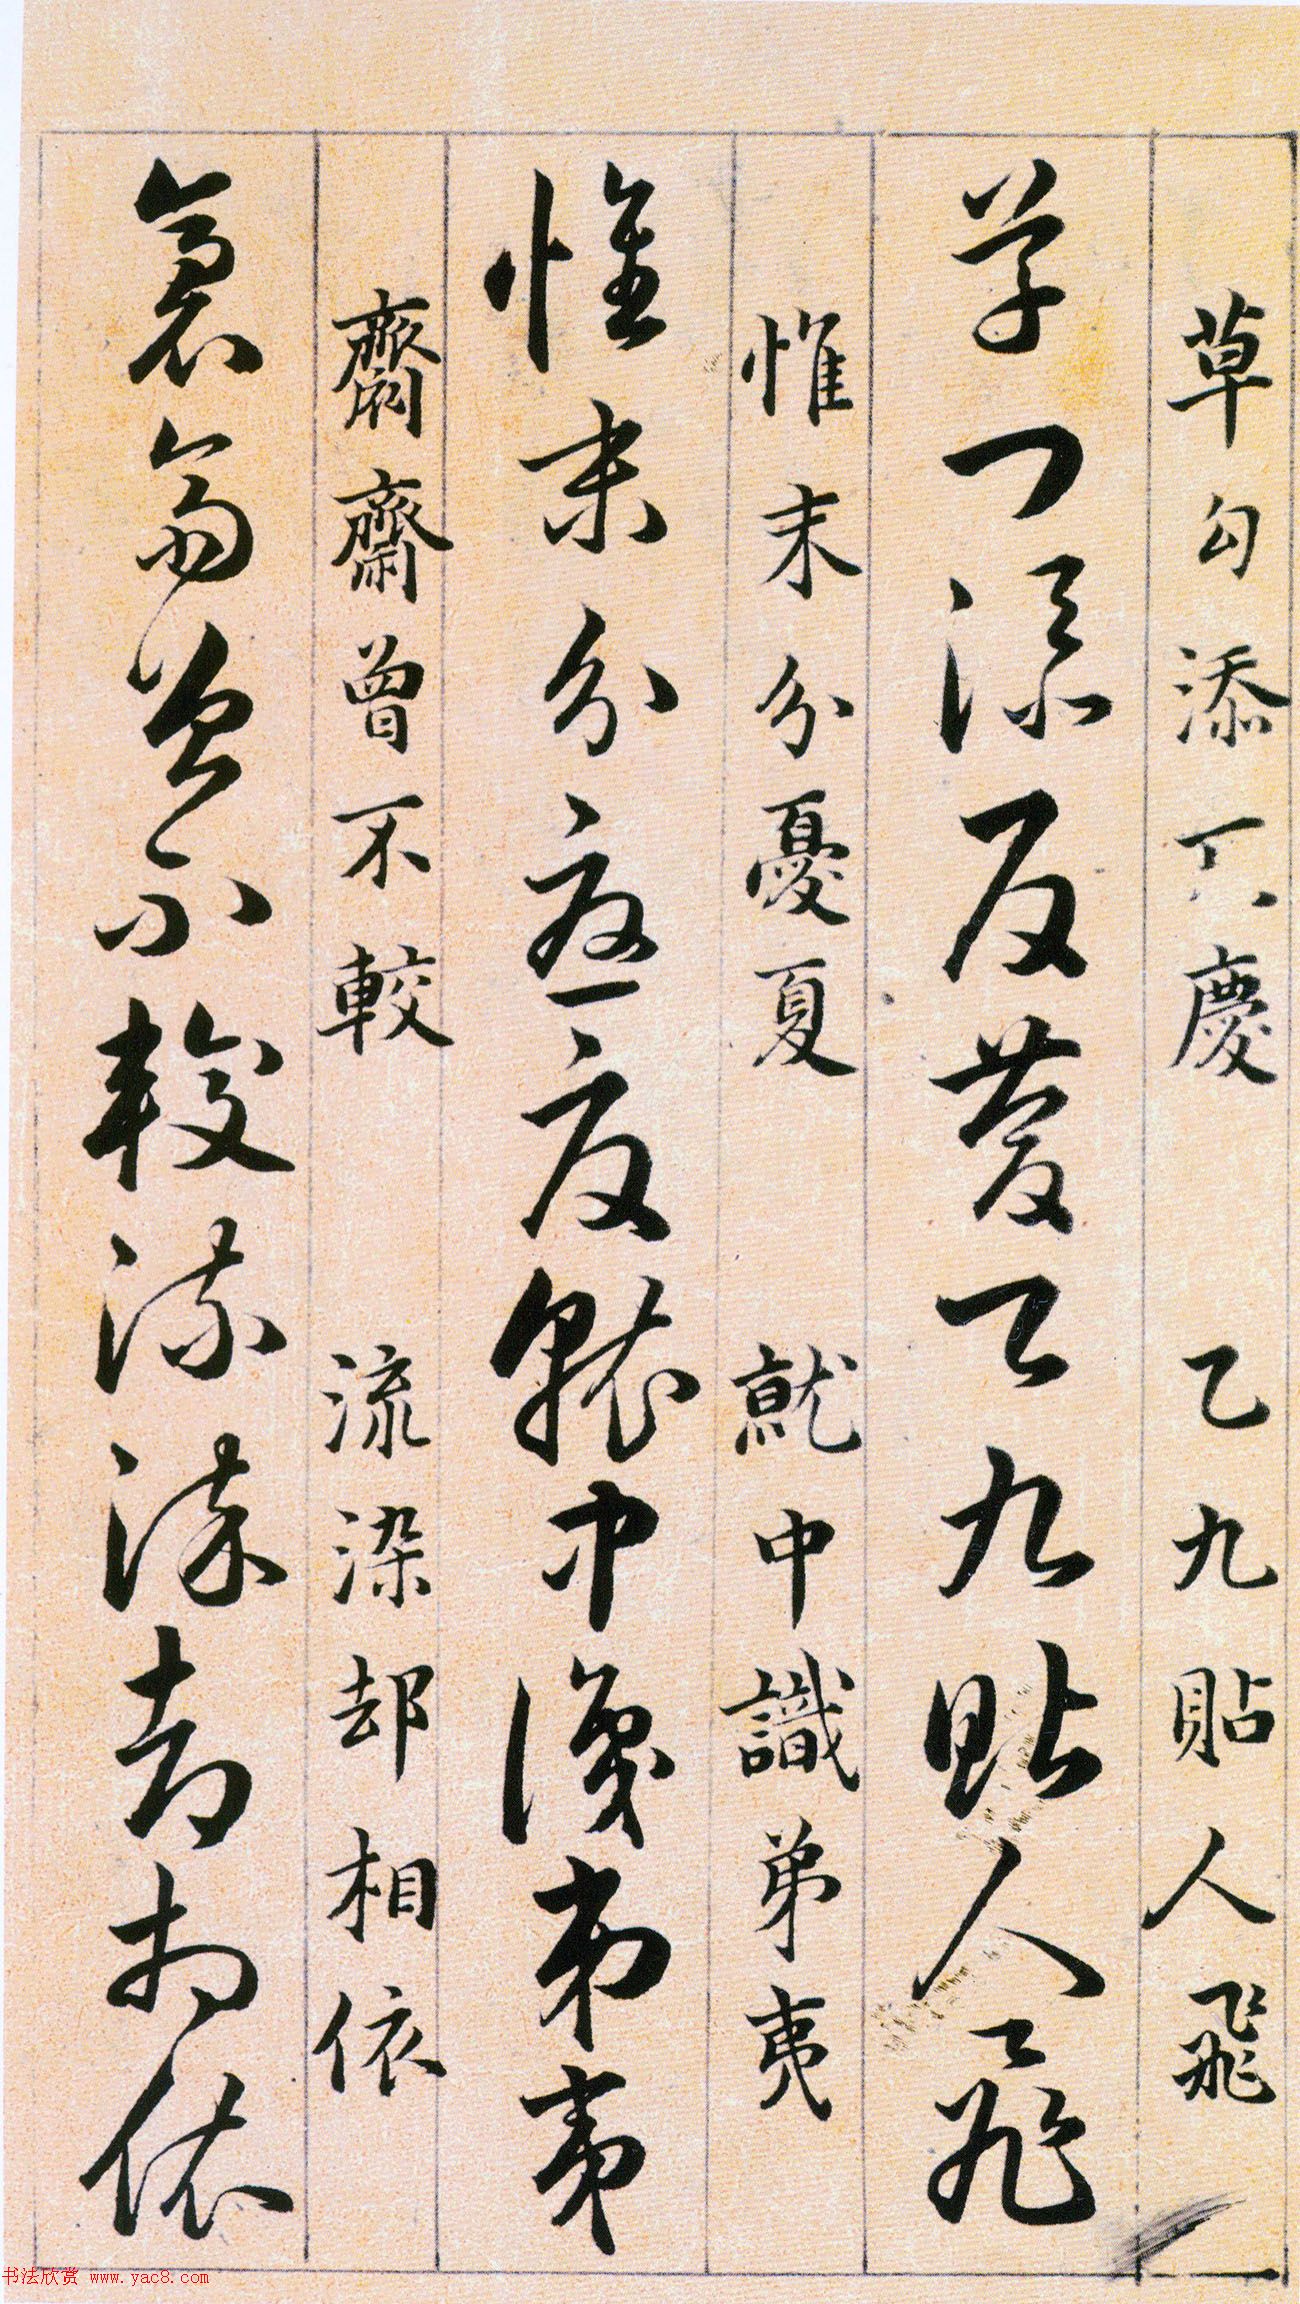 草勾添慶 乙九貼人飛
草勾添反慶乙九貼人飛
惟末分憂夏 就中識弟夷
惟末分憂夏就中識弟夷
齋曾不較 流染却相依
曾不較流染却相依
书法欣赏 www.yac8.com